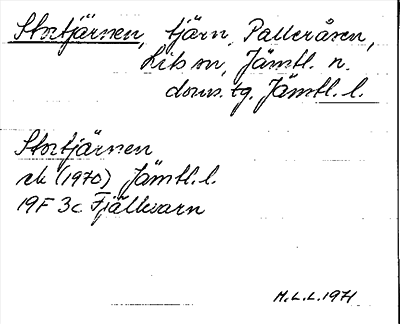 Stortjärnen, tjärn, Palleråsen,
Lits sn, Jämtl. n.
doms. tg, Jämtl. l.
Stortjärnen
ek (1970) Jämtl. l.
19F 3c Fjällkvarn
M.L.L. 1971